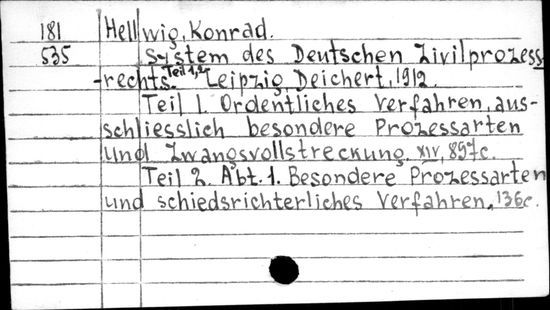 181 Hellwig, Konrad.
535 System des Deutschen Zivilprozess-
-rechts. Teil 1,2 Leipzig, Deichert, 1912.
Teil 1. Ordentliches Verfahren, aus-
schliesslich besondere Prozessarten
und Zwangsvollstreckung. XIV, 897c.
Teil 2. Abt. 1. Besondere Prozessarten
und schiedsrichterliches Verfahren. 136c.